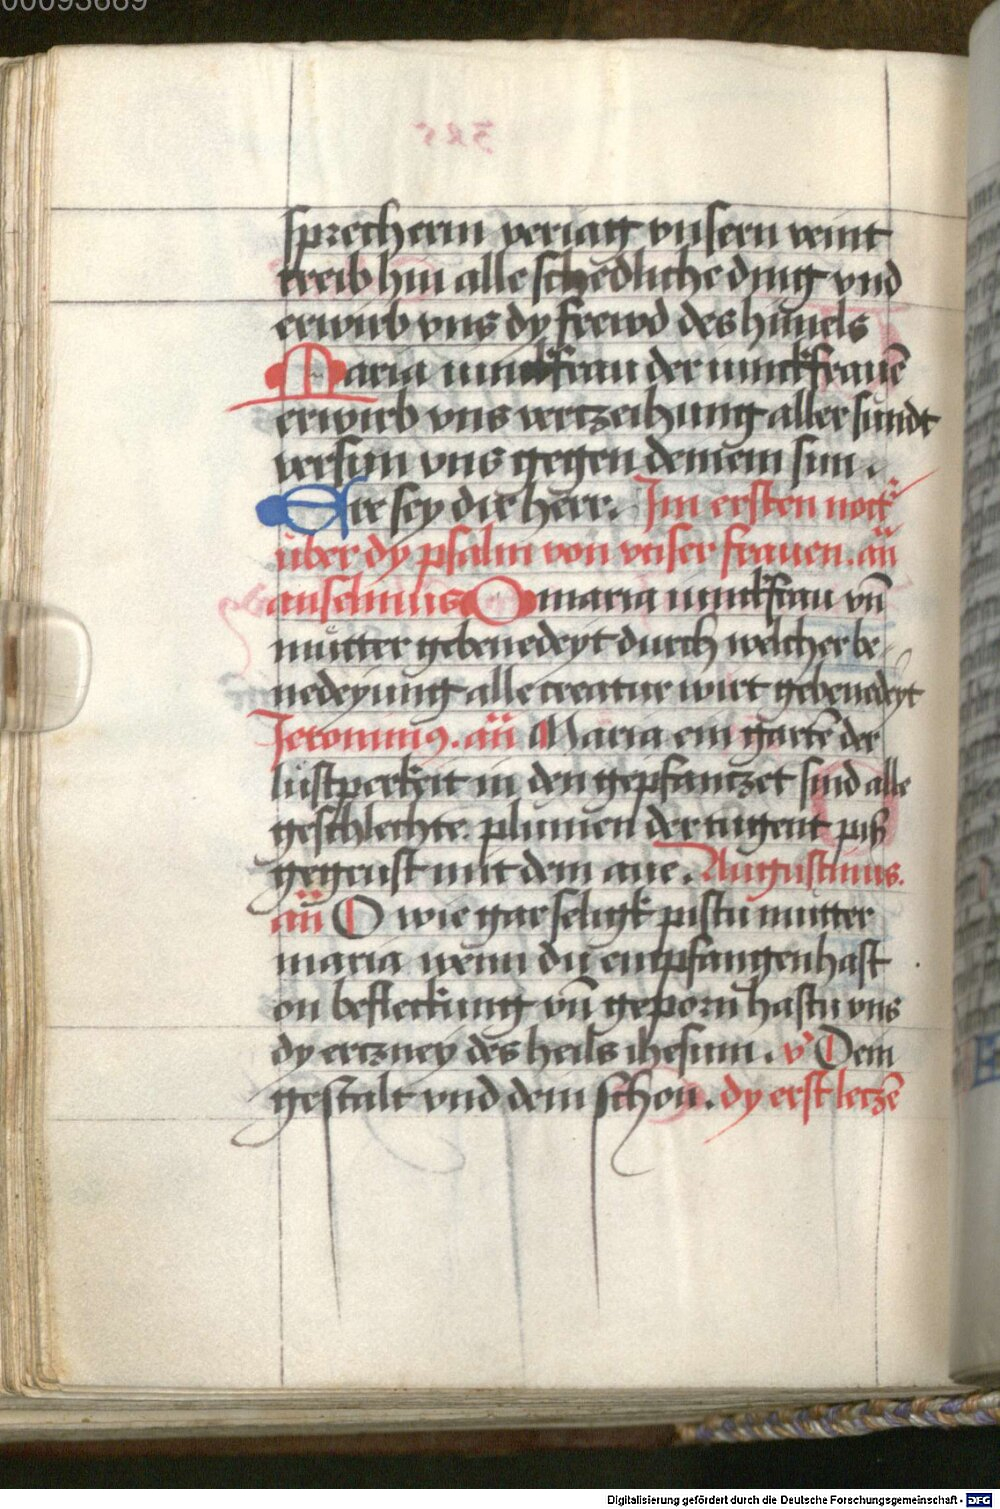 00093689
sprecherin veriag vnsern veint
treib hin alle schedliche ding vnd
erwirb vns dy frewd des himels
Maria iunckfrau der iunckfrauē
erwirb vns vertzeihung aller sundt
versün vns gegen deinem sun.
Eer sey dir herr. Im ersten noct̄
über dy psalm von vnser frauen. an̄
anselmus O maria iunckfrau vn̄
mutter gebenedeyt durch welcher be
nedeyung alle creatur wirt gebenedeyt
Jeronimꝰ. an̄ Maria ein gartē der
lustperkeit in den gepflantzet sind alle
geschlechte. plumen der tugent piß
gegrust mit dem aue. Augustinus.
an̄ O wie gar seligk pistu mutter
maria wenn du empfangen hast
on befleckung vn̄ geporn hastu vns
dy ertzney des heils ihesum. v̓ Dein
gestalt vnd dein schon. dy erst letzē
Digitalisierung gefördert durch die Deutsche Forschungsgemeinschaft - DFG